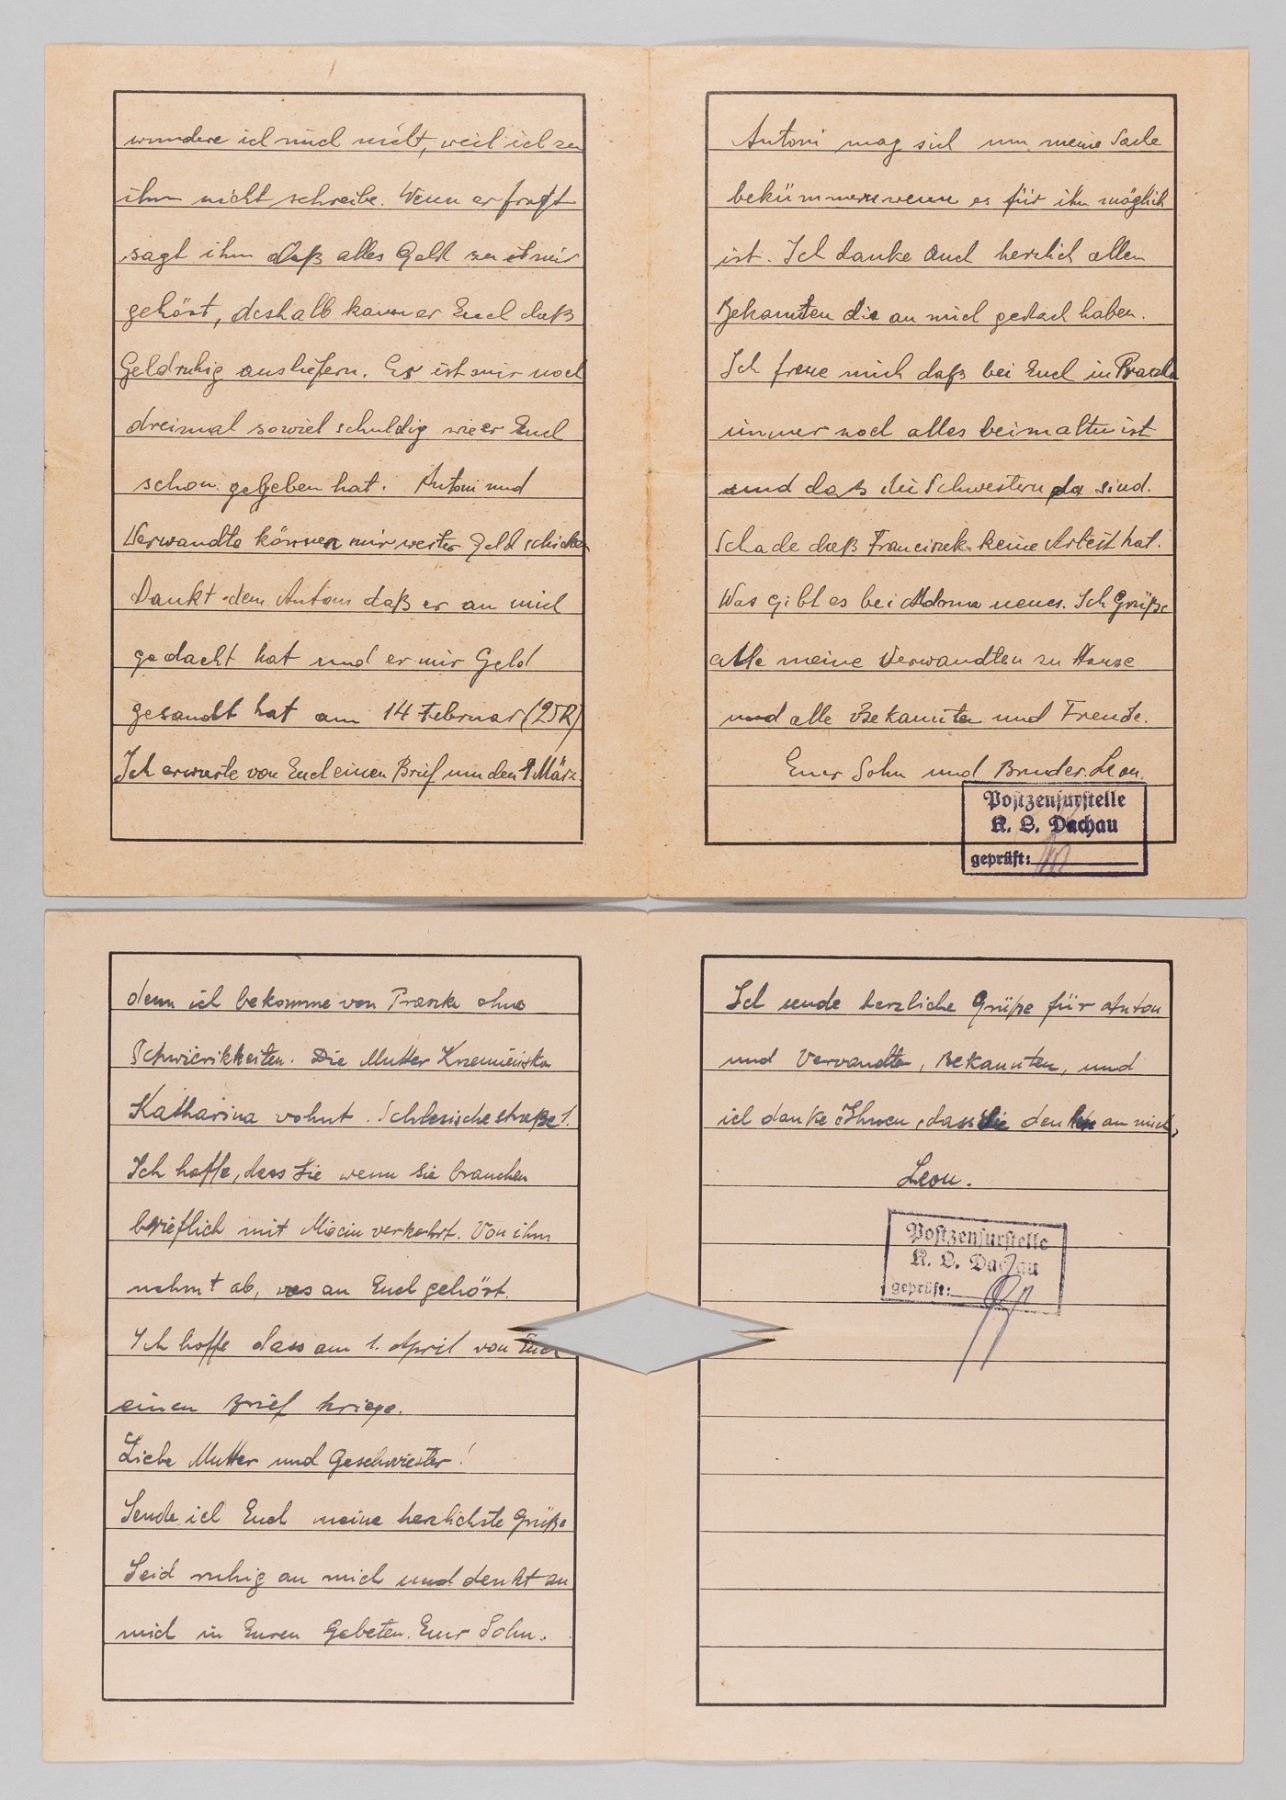 wundere ich mich nicht, weil ich zu
ihm nicht schreibe. Wenn er fragt
sagt ihm daß alles Geld zu mir
gehört, deshalb kann er Euch daß
Geld ruhig ausliefern. Er ist mir noch
dreimal soviel schuldig wie er Euch
schon gegeben hat. Antoni und
Verwandte können mir weiter Geld schicken
Dankt dem Antoni daß er an mich
gedacht hat und er mir Geld
gesandt hat am 14 Februar (25R)
Ich erwarte von Euch einen Brief um den 1 März
Antoni mag sich um meine Sache
bekümmern wenn es für ihn möglich
ist. Ich danke auch herzlich allen
Bekannten die an mich gedach haben.
Ich freue mich daß bei Euch in Praszka
immer noch alles beim alten ist
und daß die Schwestern da sind.
Schade daß Franciszek keine Arbeit hat.
Was gibt es bei neues. Ich Grüße
alle meine Verwandten zu Hause
und alle Bekannten und Freude.
Euer Sohn und Bruder Leon.
Postzensurstelle
K. L. Dachau
geprüft:
denn ich bekomme von Praszka ohne
Schwierikkeiten. Die Mutter Krzemińska
Katharina vohnt Schlesischestraße 1.
Ich hoffe, dass Sie wenn Sie brauchen
brieflich mit verkehrt. Von ihm
nehmt ab, was an Euch gehört.
Ich hoffe dass am 1. April von Euch
einen Brief kriege.
Liebe Mutter und Geschwister!
Sende ich Euch meine herzlichste Grüße
Seid ruhig an mich und denkt an
mich in Euren Gebeten. Euer Sohn.
Ich sende herzliche Grüße für Anton
und Vervandte, Bekannten, und
ich danke Ihnen, dass Sie denken an mich,
Leon.
Postzensurstelle
K. L. Dachau
geprüft: